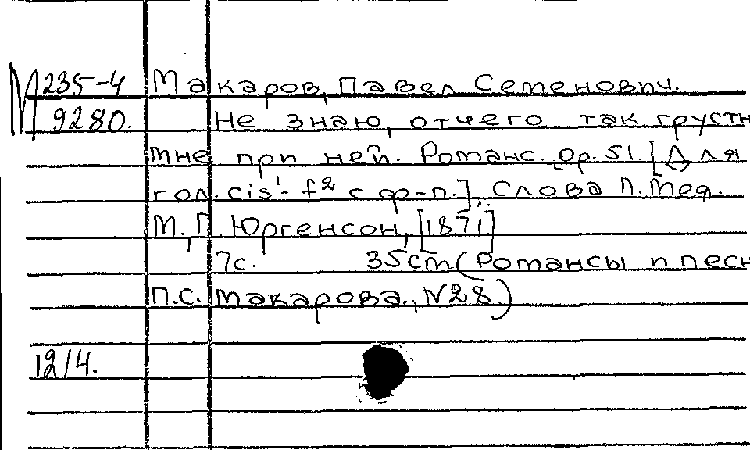 М 235-4 Макаров, Павел Семенович.
9280. Не знаю, отчего так грустн
мне при ней. Романс. Op. 51 [Для
гол. cis¹- f² с ф-п.], Слова П. Мея.
М., П. Юргенсон, [1871]
7с. 35cm (Романсы и песн
П.С. Макарова., N28.)
12/4.